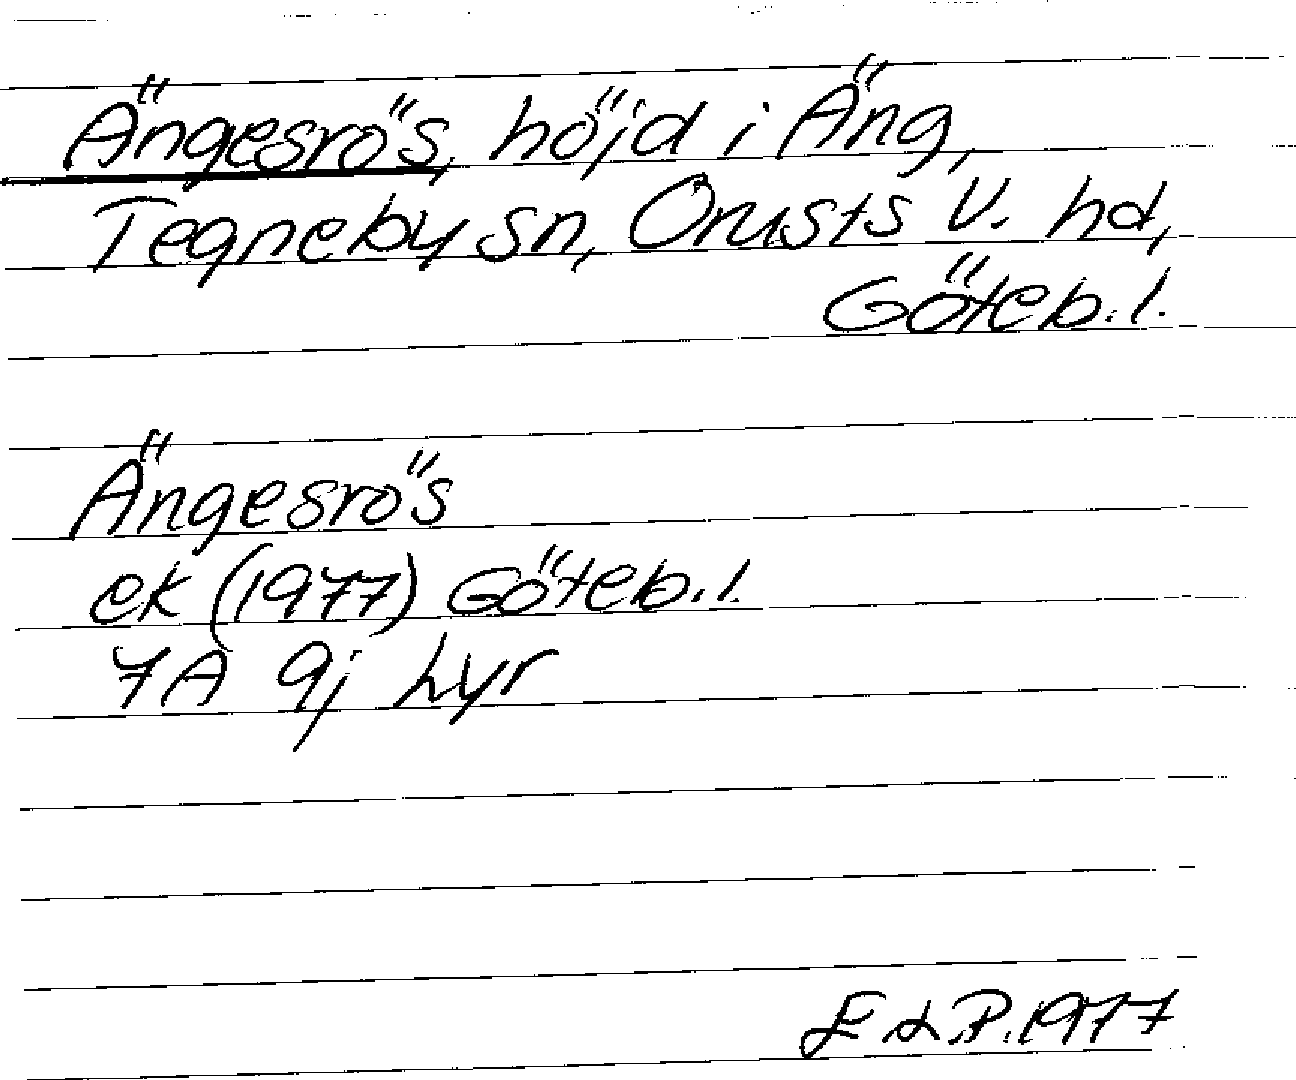 Ängesrös, höjd i Äng,
Tegneby sn, Orusts V. hd,
Göteb. l.
Ängesrös
ek (1977) Göteb. l.
7A 9j Lyr
1977